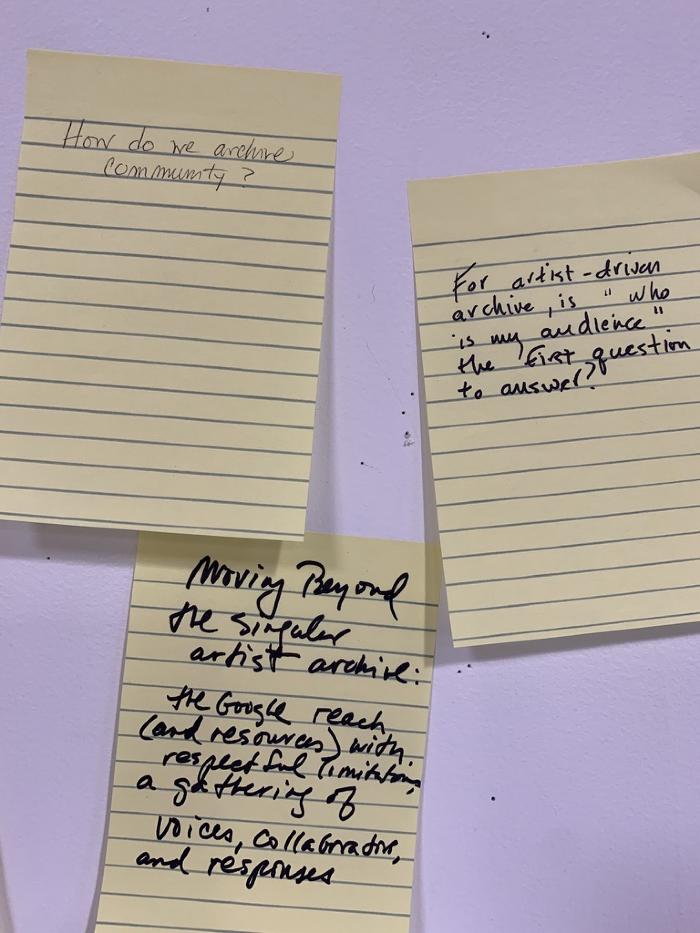 How do we archive
community?
For artist-driven
archive, is "who
is my audience"
the first question
to answer?
Moving Beyond
the singular
artist archive:
the Google reach
(and resources) with
respectful limitations,
a gathering of
voices, collaborators,
and responses